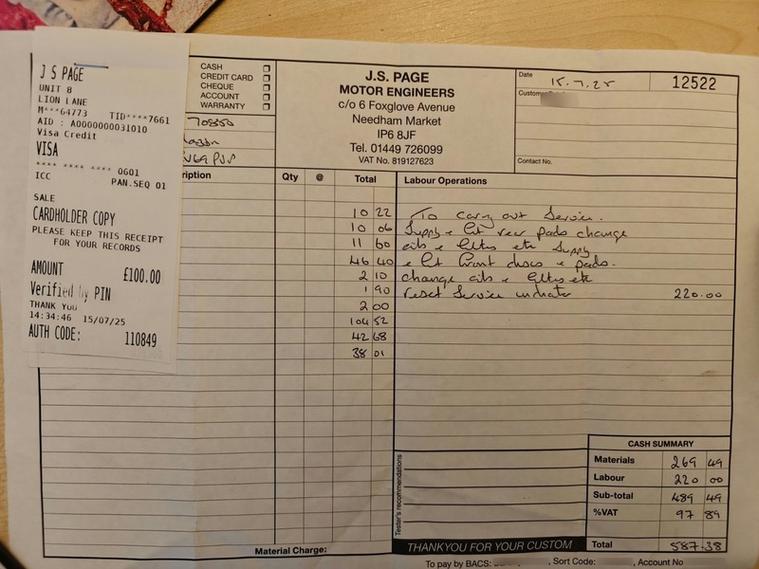 J S PAGE
UNIT 8
LION LANE
M***64773 TID****7661
AID : A0000000031010
Visa Credit
VISA
**** **** **** 0601
ICC PAN.SEQ 01
SALE
CARDHOLDER COPY
PLEASE KEEP THIS RECEIPT
FOR YOUR RECORDS
AMOUNT £100.00
Verified by PIN
THANK YOU
14:34:46 15/07/25
AUTH CODE: 110849
CASH
CREDIT CARD
CHEQUE
ACCOUNT
WARRANTY
70850
J.S. PAGE
MOTOR ENGINEERS
c/o 6 Foxglove Avenue
Needham Market
IP6 8JF
Tel. 01449 726099
VAT No. 819127623
Date 15.7.25 12522
Contact No.
Qty @ Total
10 22
10 06
11 60
46 40
2 10
1 90
2 00
104 52
42 68
38 01
Material Charge:
Labour Operations
To carry out Service.
Supply + fit rear pads change
oils + filters etc Supply
+ fit front discs + pads.
change oils + filters etc
reset Service indicator 220.00
Tester's recommendations
THANKYOU FOR YOUR CUSTOM
CASH SUMMARY
Materials 269 49
Labour 220 00
Sub-total 489 49
%VAT 97 89
Total 587.38
To pay by BACS: , Sort Code: , Account No